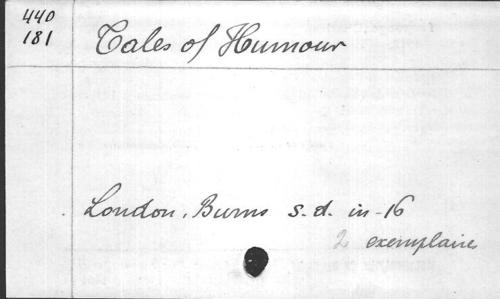 440
181
Tales of Humour
London, Burns s.d. in-16
2 exemplaire